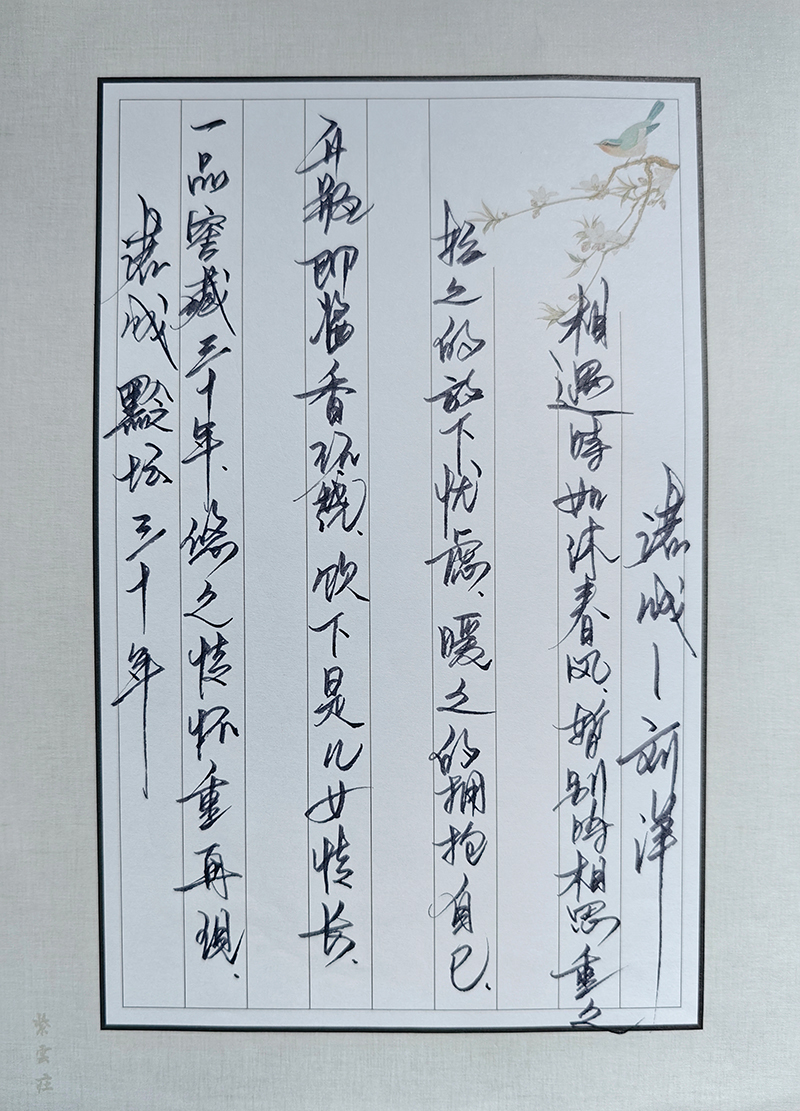 诺成一刘洋
相遇时如沐春风、暂别时相思重之
松之的放下忧虑、暖之的拥抱自己、
开瓶即酱香环绕、饮下是儿女情长、
一品窖藏三十年、悠之情怀重再现、
诺成 黔坛三十年
紫云庄